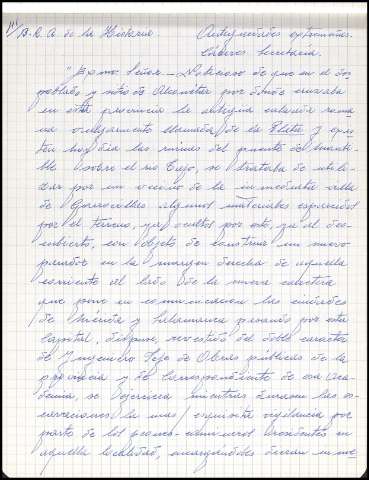 B.R.A. de la Historia. Antigüedades extremeñas.
Cáceres. Secretaría.
"Excmo Señor = Noticioso de que en el des
poblado y sitio de Alconétar por donde cruzaba
en esta provincia la antigua calzada roma
na vulgarmente llamada de la Plata y exis
ten hoy dia las ruinas del puente de Mantible
sobre el rio Tajo, se trataba de utili
zar por un vecino de la inmediata villa
de Garrovillas algunos materiales esparcidos
por el terreno, ya ocultos por este, ya al des
cubierto, con objeto de construir un nuevo
parador en la margen derecha de aquella
corriente al lado de la nueva carretera
que pone en comunicacion las ciudades
de Mérida y Salamanca pasando por esta
Capital, dispuse, revestido del doble caracter
de Ingeniero Jefe de Obras públicas de la
provincia y de Correspondiente de esa Aca
demia, se ejerciera mientras duraran las ex
cavaciones la mas exquisita vigilancia por
parte de los peones-camineros residentes en
aquella localidad, encargándoles dieran in me